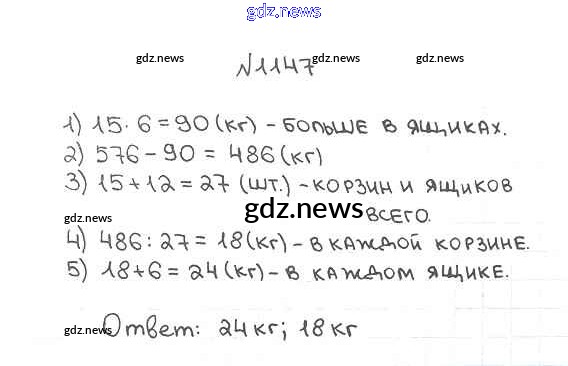 gdz.news
gdz.news gdz.news gdz.news
№1147
1) 15·6=90(кг)-больше в ящиках.
2) 576-90=486(кг)
3) 15+12=27(шт.)-корзин и ящиков
gdz.news gdz.news всего.
4) 486:27=18(кг)-в каждой корзине.
5) 18+6=24(кг)-в каждом ящике.
gdz.news Ответ: 24кг; 18кг gdz.news